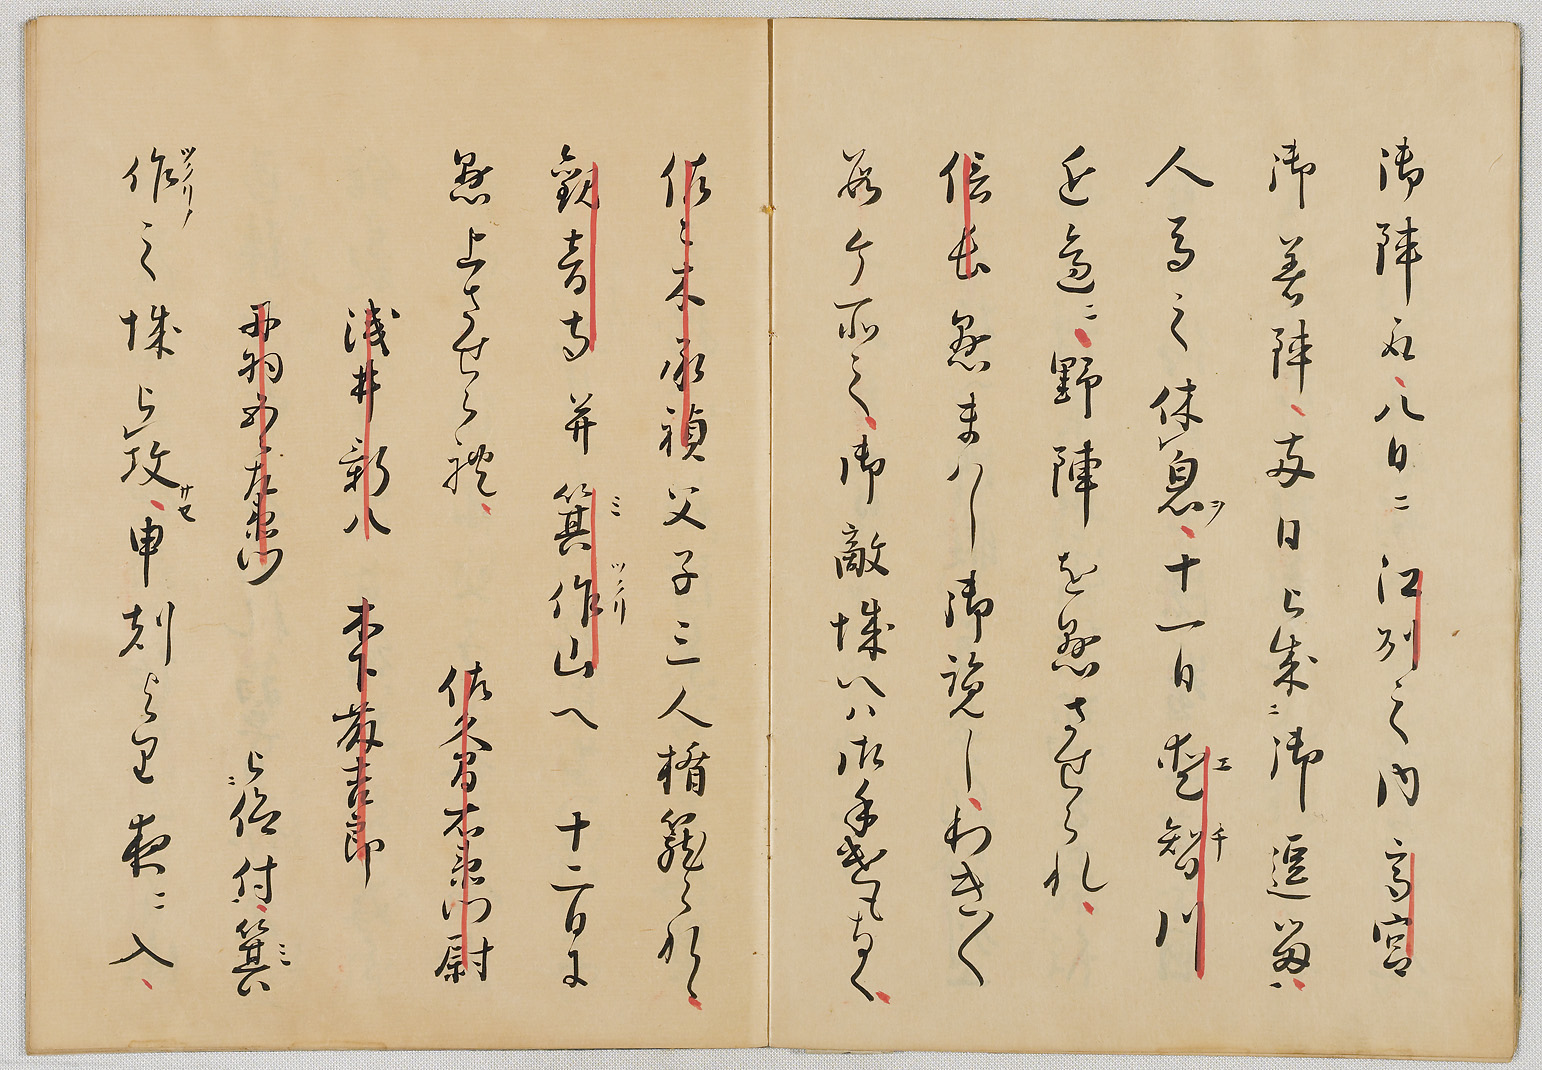 御陣取八日ニ江州之内高宮
御着陣両日被成ニ御逗留
人馬之休息ヲ十一日愛智川
近邊ニ野陣を懸させられ
信長懸まハし御覧しわき〱
数ケ所之御敵城へハ御手遣もなく
佐々木承禎父子三人楯籠られ
観音寺并箕作山へ 十二日に
懸上させられ 佐久間右衛門尉
浅井新八 木下藤吉郎
丹羽五郎左衛門 被ニ仰付箕
作之城被攻申刻より夜ニ入